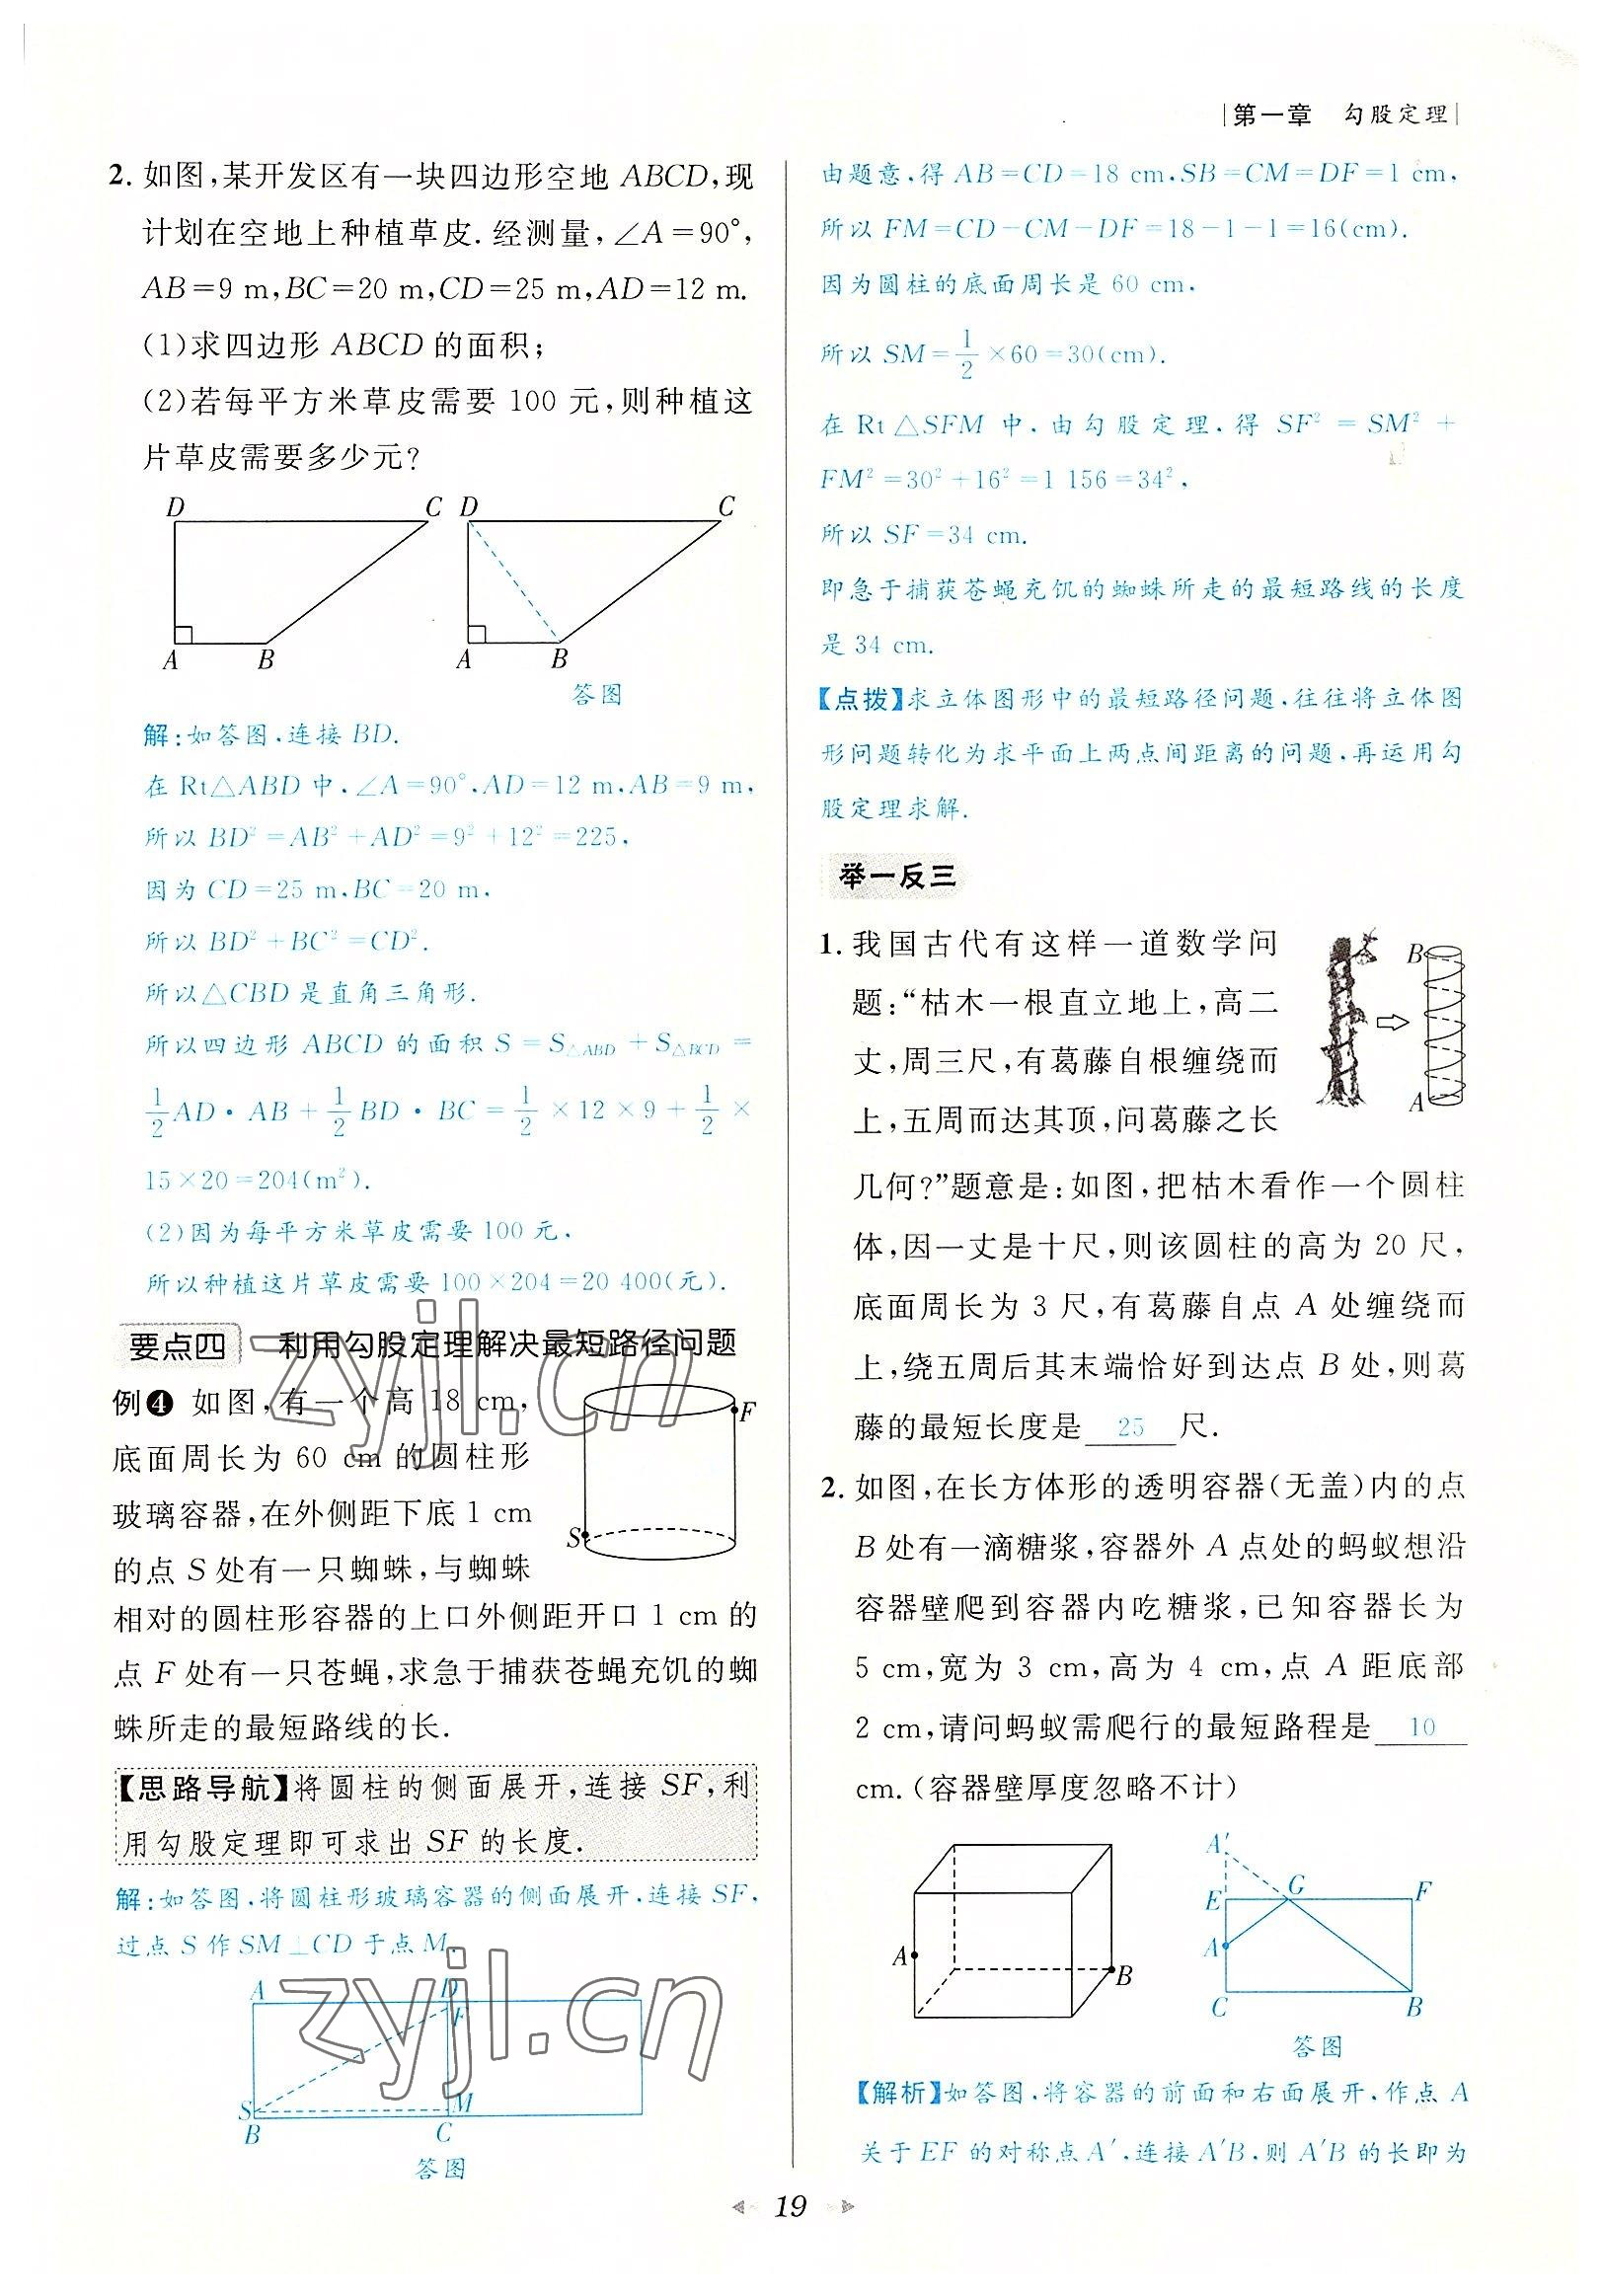 第一章 勾股定理
2. 如图,某开发区有一块四边形空地 ABCD,现
计划在空地上种植草皮. 经测量,∠A=90°,
AB=9 m,BC=20 m,CD=25 m,AD=12 m.
(1)求四边形 ABCD 的面积;
(2)若每平方米草皮需要 100 元,则种植这
片草皮需要多少元?
D C D C
A B A B
答图
解:如答图,连接 BD.
在 Rt△ABD 中,∠A=90°,AD=12 m,AB=9 m,
所以 BD²=AB²+AD²=9²+12²=225,
因为 CD=25 m,BC=20 m,
所以 BD²+BC²=CD².
所以△CBD 是直角三角形.
所以四边形 ABCD 的面积 S=S△ABD+S△BCD=
1/2 AD·AB+1/2 BD·BC=1/2×12×9+1/2×
15×20=204(m²).
(2)因为每平方米草皮需要 100 元,
所以种植这片草皮需要 100×204=20 400(元).
要点四 利用勾股定理解决最短路径问题
例❹ 如图,有一个高 18 cm,
底面周长为 60 cm 的圆柱形
玻璃容器,在外侧距下底 1 cm
的点 S 处有一只蜘蛛,与蜘蛛
相对的圆柱形容器的上口外侧距开口 1 cm 的
点 F 处有一只苍蝇,求急于捕获苍蝇充饥的蜘
蛛所走的最短路线的长.
F
S
【思路导航】将圆柱的侧面展开,连接 SF,利
用勾股定理即可求出 SF 的长度.
解:如答图,将圆柱形玻璃容器的侧面展开,连接 SF,
过点 S 作 SM⊥CD 于点 M,
A D
F
S M
B C
答图
由题意,得 AB=CD=18 cm,SB=CM=DF=1 cm,
所以 FM=CD-CM-DF=18-1-1=16(cm).
因为圆柱的底面周长是 60 cm,
所以 SM=1/2×60=30(cm).
在 Rt△SFM 中,由勾股定理,得 SF²=SM²+
FM²=30²+16²=1 156=34²,
所以 SF=34 cm.
即急于捕获苍蝇充饥的蜘蛛所走的最短路线的长度
是 34 cm.
【点拨】求立体图形中的最短路径问题,往往将立体图
形问题转化为求平面上两点间距离的问题,再运用勾
股定理求解.
举一反三
1. 我国古代有这样一道数学问
题:“枯木一根直立地上,高二
丈,周三尺,有葛藤自根缠绕而
上,五周而达其顶,问葛藤之长
几何?”题意是:如图,把枯木看作一个圆柱
体,因一丈是十尺,则该圆柱的高为 20 尺,
底面周长为 3 尺,有葛藤自点 A 处缠绕而
上,绕五周后其末端恰好到达点 B 处,则葛
藤的最短长度是 25 尺.
B
A
2. 如图,在长方体形的透明容器(无盖)内的点
B 处有一滴糖浆,容器外 A 点处的蚂蚁想沿
容器壁爬到容器内吃糖浆,已知容器长为
5 cm,宽为 3 cm,高为 4 cm,点 A 距底部
2 cm,请问蚂蚁需爬行的最短路程是 10
cm.(容器壁厚度忽略不计)
A B
A′
E G F
A
C B
答图
【解析】如答图,将容器的前面和右面展开,作点 A
关于 EF 的对称点 A′,连接 A′B,则 A′B 的长即为
19
zyjl.cn
zyjl.cn